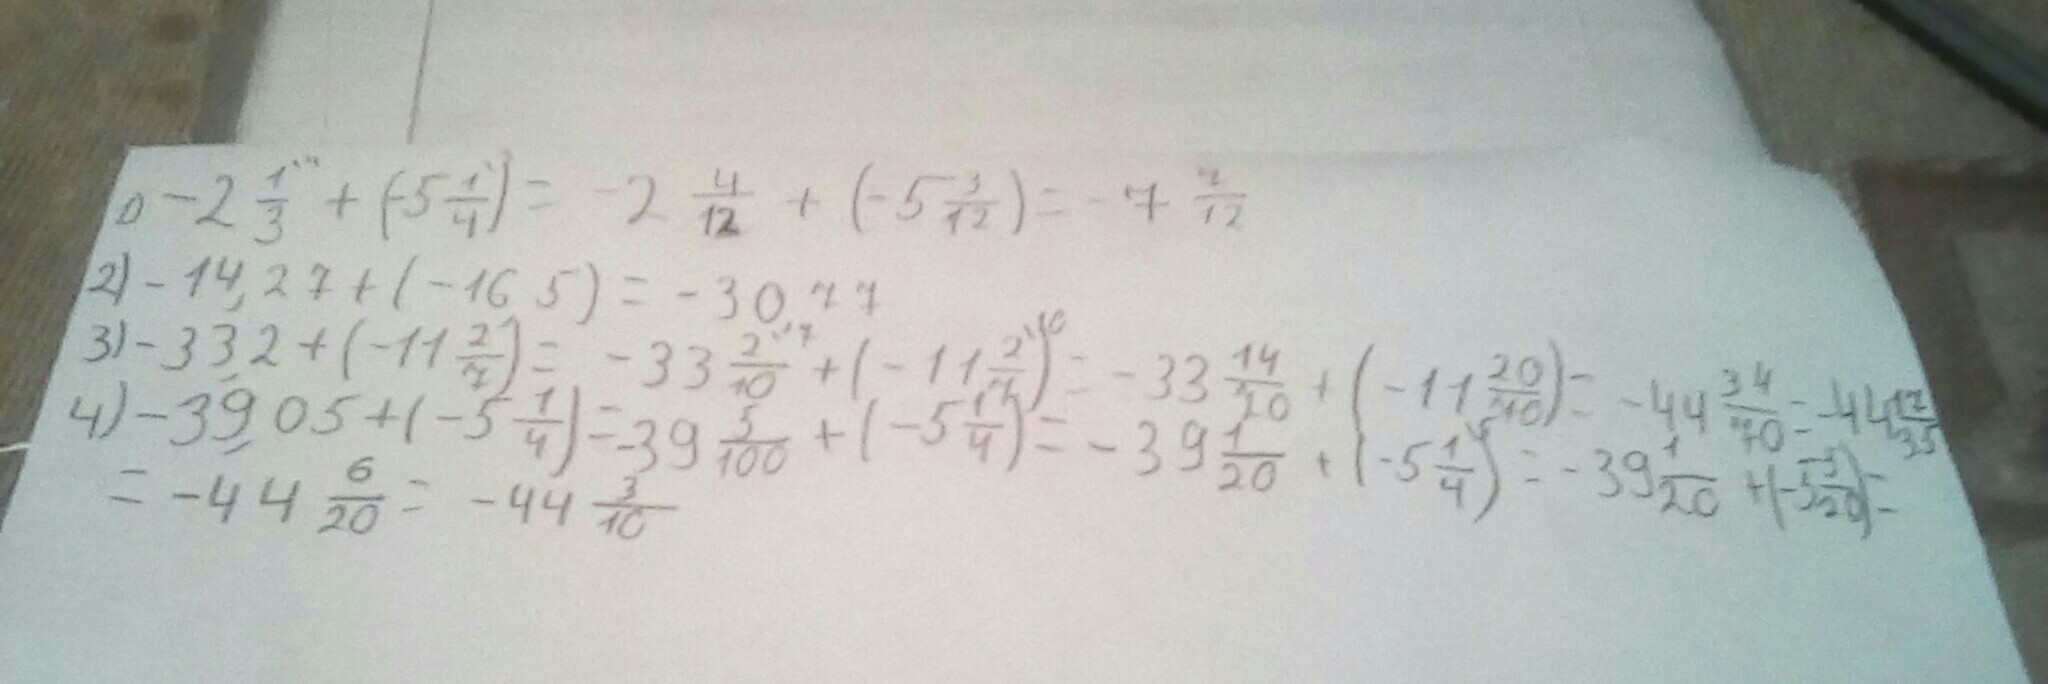 1) -2 1/3 + (-5 1/4) = -2 4/12 + (-5 3/12) = -7 7/12
2) -14,27 + (-16,5) = -30,77
3) -33,2 + (-11 2/7) = -33 2/10 + (-11 2/7) = -33 14/70 + (-11 20/70) = -44 34/70 = -44 17/35
4) -39,05 + (-5 1/4) = -39 5/100 + (-5 1/4) = -39 1/20 + (-5 1/4) = -39 1/20 + (-5 5/20) =
= -44 6/20 = -44 3/10